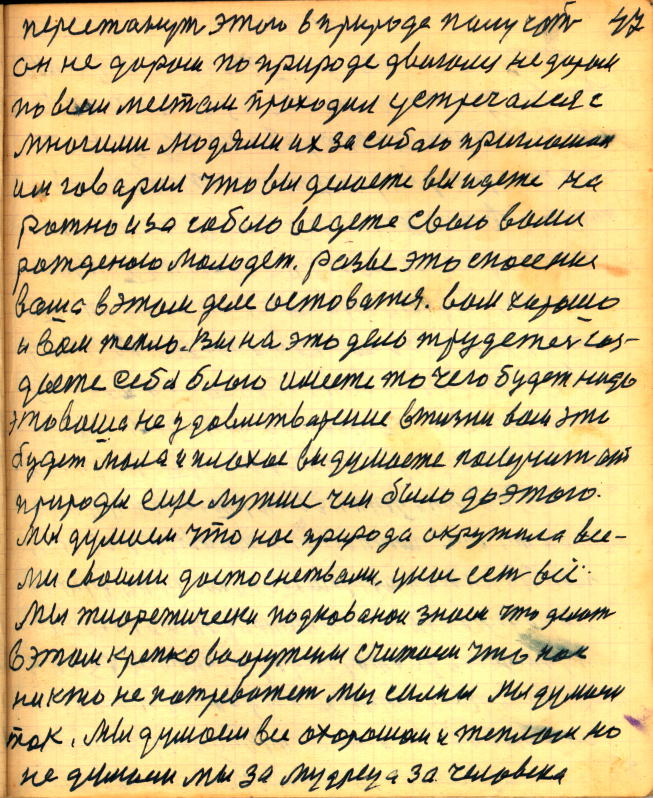 перестанут этого в природе получат 47
он не даром по природе двигался не даром
по всем местам проходил устречался с
многими людями их за собаю приглошал
им говарил что вы делаете вы идете на
ратно и за собою ведете свою вами
рожденою молодеж. разве это спосение
ваша в этом деле остоватся. вам харашо
и вам тепло. Вы на это дело трудетеся соз-
даете себе благо имеете то чего будет надо
это ваша не удовлетварение в жизни вам это
будет мала и плохое вы думаете получит от
природы еще лутше чем было до этого.
Мы думаем что нас природа окружила все-
ми своими достоенствами. у нас ест всё.
Мы тиоретически подкованои знаем что делат
в этом крепко вааружены считаем что нас
никто не потревожет мы силны мы думаем
так. Мы думаем все охорошом и теплом но
не думаем мы за мудреца за человека